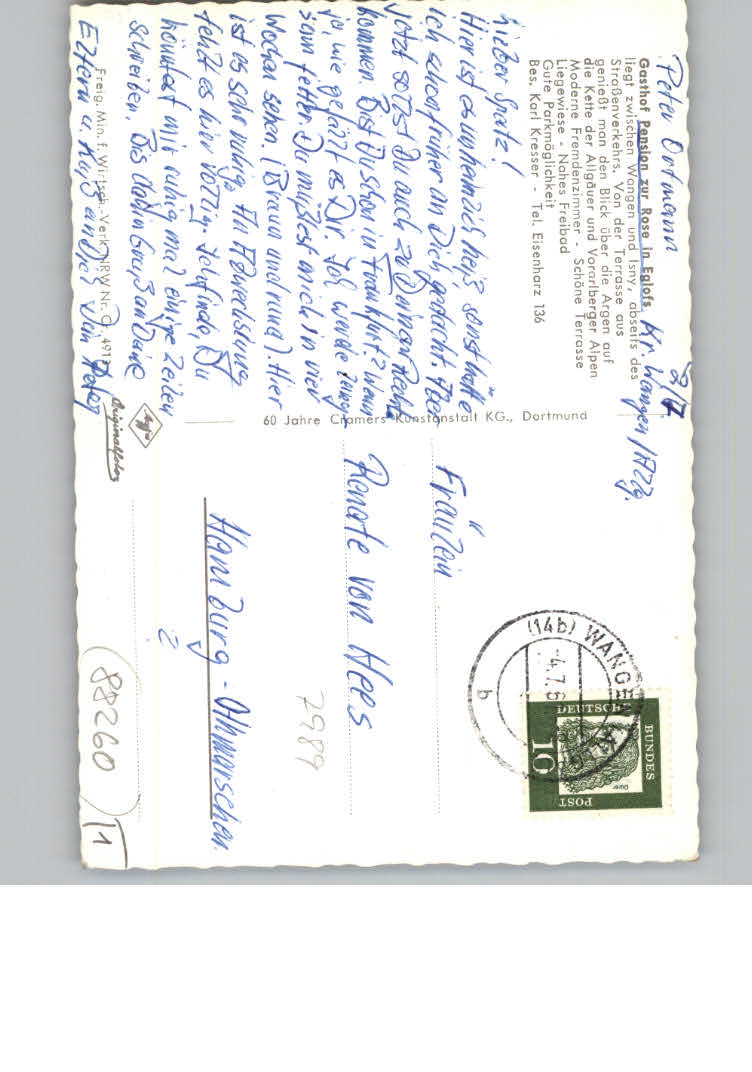 Peter Ortmann
Gasthof Pension zur Rose in Eglofs Kr. Wangen/Allg.
liegt zwischen Wangen und Isny, abseits des
Straßenverkehrs. Von der Terrasse aus
genießt man den Blick über die Argen auf
die Kette der Allgäuer und Vorarlberger Alpen
Moderne Fremdenzimmer - Schöne Terrasse
Liegewiese - Nahes Freibad
Gute Parkmöglichkeit
Bes. Karl Kresser - Tel. Eisenharz 136
Lieber Spatz!
Hier ist es unheimlich heiß, sonst hätte
ich schon früher an Dich gedacht. Aber
jetzt sollst Du auch zu Deinem Recht
kommen. Bist Du schon in Frankfurt? Wenn
ja, wie gefällt es Dir. Ich werde
Du müßtest mich in vier
Wochen sehen (Braun und rund). Hier
ist es sehr ruhig. An Abwechslung
fehlt es hier völlig. Ich finde, Du
könntest mir ruhig mal einige Zeilen
schreiben. Bis dahin Gruß an Deine
Eltern u. Kuß an Dich Dein Peter
Freig. Min. f. Wirtsch.-Verk. NRW Nr. O. 491
Agfa
Originalfoto
60 Jahre Cramers Kunstanstalt KG., Dortmund
Fräulein
Renate von Hees
Hamburg-Othmarschen
2
7989
88260
1
(14b) WANGEN
-4.7.6
b
DEUTSCHE
BUNDES
POST
10
Dürer